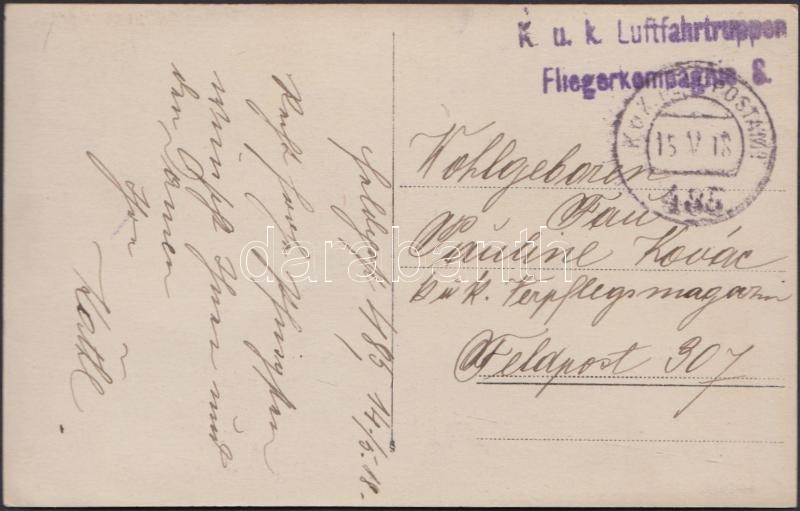 K. u. k. Luftfahrtruppen
Fliegerkompagnie 8.
K.u.K. FELDPOSTAMT
15 V 18
485
Wohlgeboren
Frau
Pauline Kovác
k u k. Verpflegsmagazin
Feldpost 307
Feldpost 485, 14/5.18.
Recht frohe Pfingsten
wünscht Ihnen und
den Damen
Ihr
darabanth